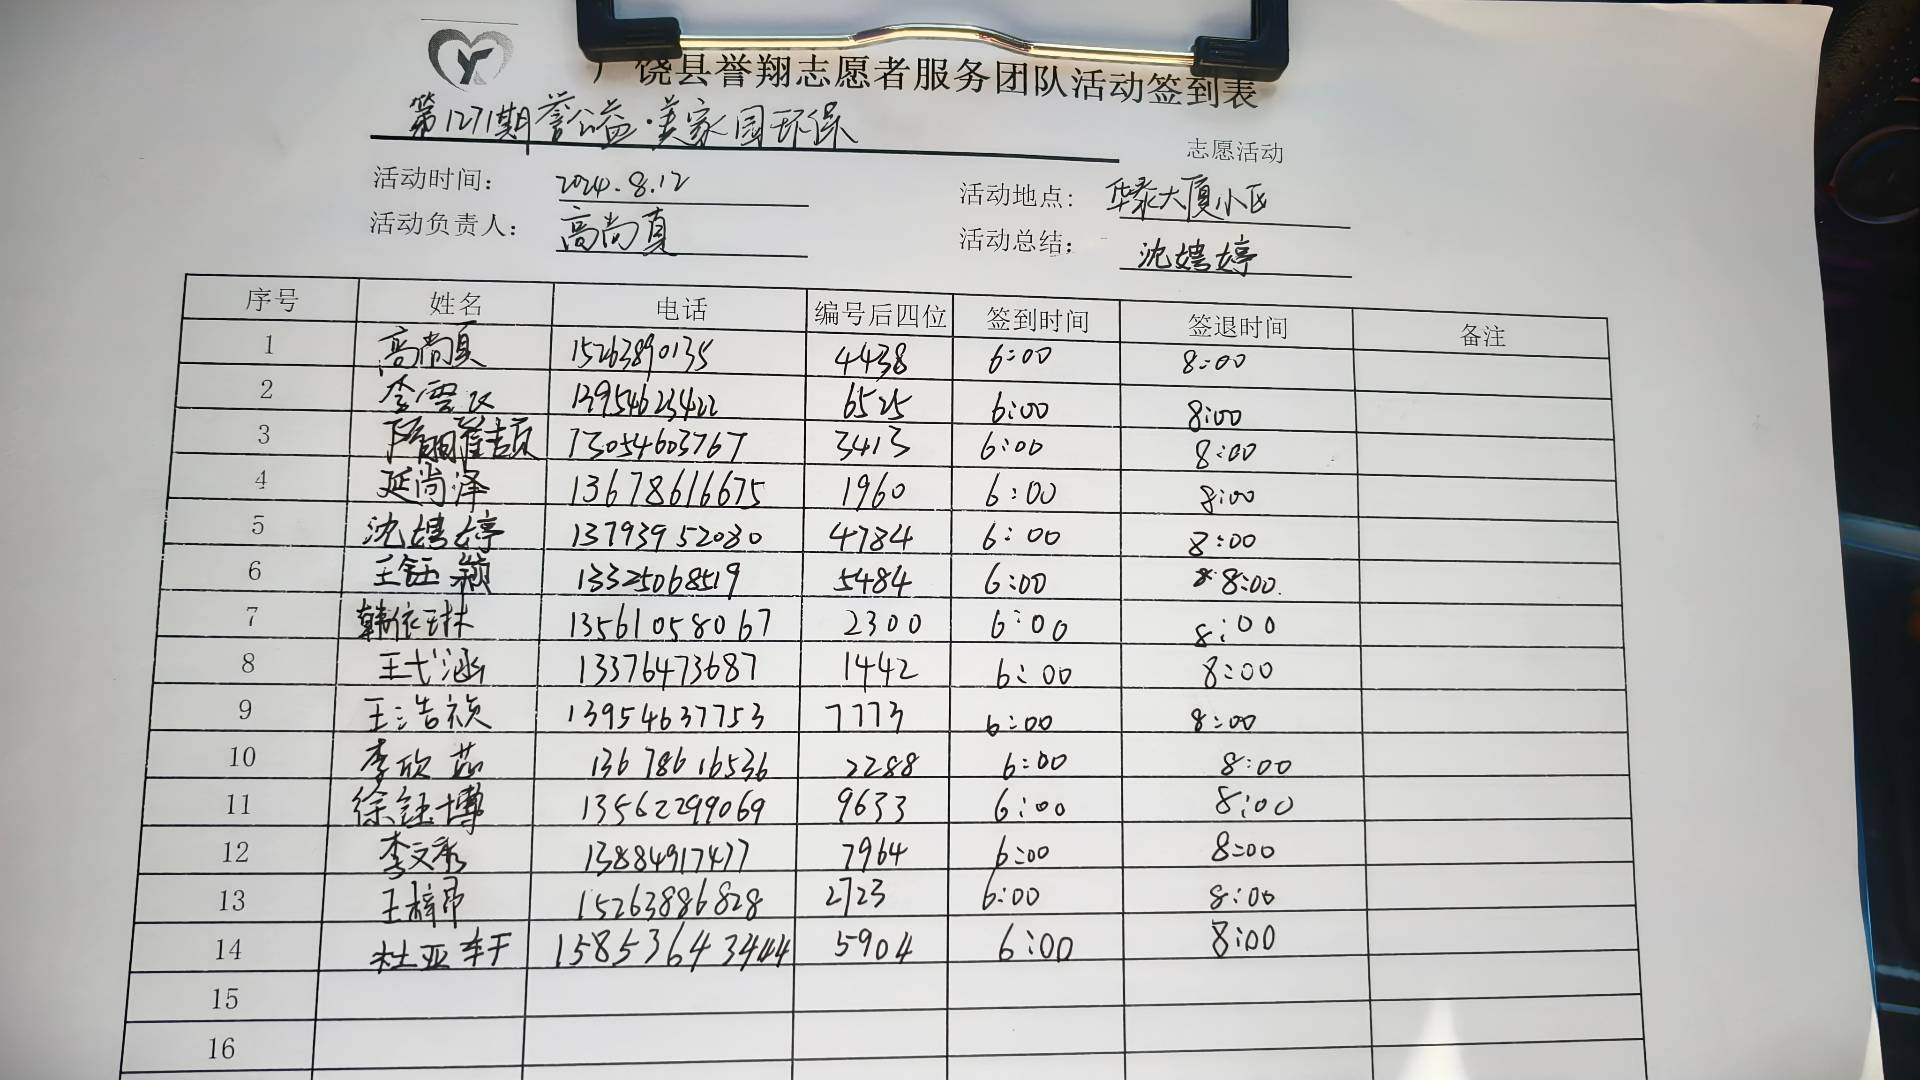 广饶县誉翔志愿者服务团队活动签到表
第1271期誉公益·美家园环保 志愿活动
活动时间： 2024.8.12 活动地点： 华泰大厦小区
活动负责人： 高尚真 活动总结； 沈娉婷
序号 姓名 电话 编号后四位 签到时间 签退时间 备注
1 高尚真 15263890135 4438 6:00 8:00
2 李雪 13954623422 6525 6:00 8:00
3 13054603767 3413 6:00 8:00
4 延尚泽 13678616675 1960 6:00 8:00
5 沈娉婷 13793952080 4784 6:00 8:00
6 王钰颖 13325068519 5484 6:00 8:00
7 韩依琳 13561058067 2300 6:00 8:00
8 王弋涵 13376473687 1442 6:00 8:00
9 王浩祯 13954637753 7773 6:00 8:00
10 李欣茹 13678616536 2288 6:00 8:00
11 徐钰博 13562299069 9633 6:00 8:00
12 李文秀 13884917477 7964 6:00 8:00
13 王梓昂 15263886828 2723 6:00 8:00
14 杜亚轩 15853643444 5904 6:00 8:00
15
16